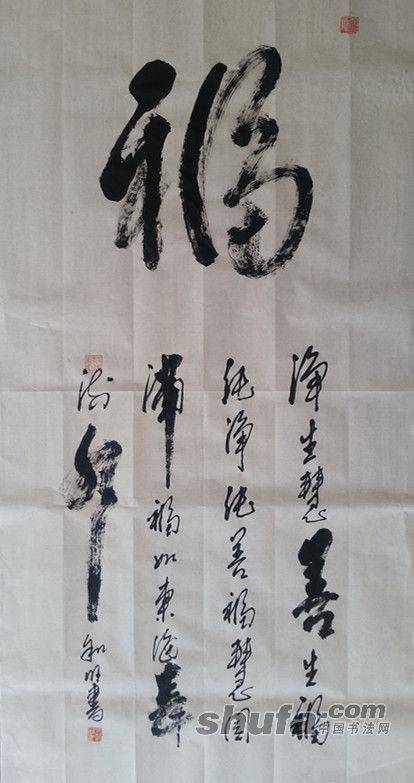 福
净生慧善生福
纯净纯善福慧圆
满福如東海寿
年
和明書
shufa.com
中国书法网